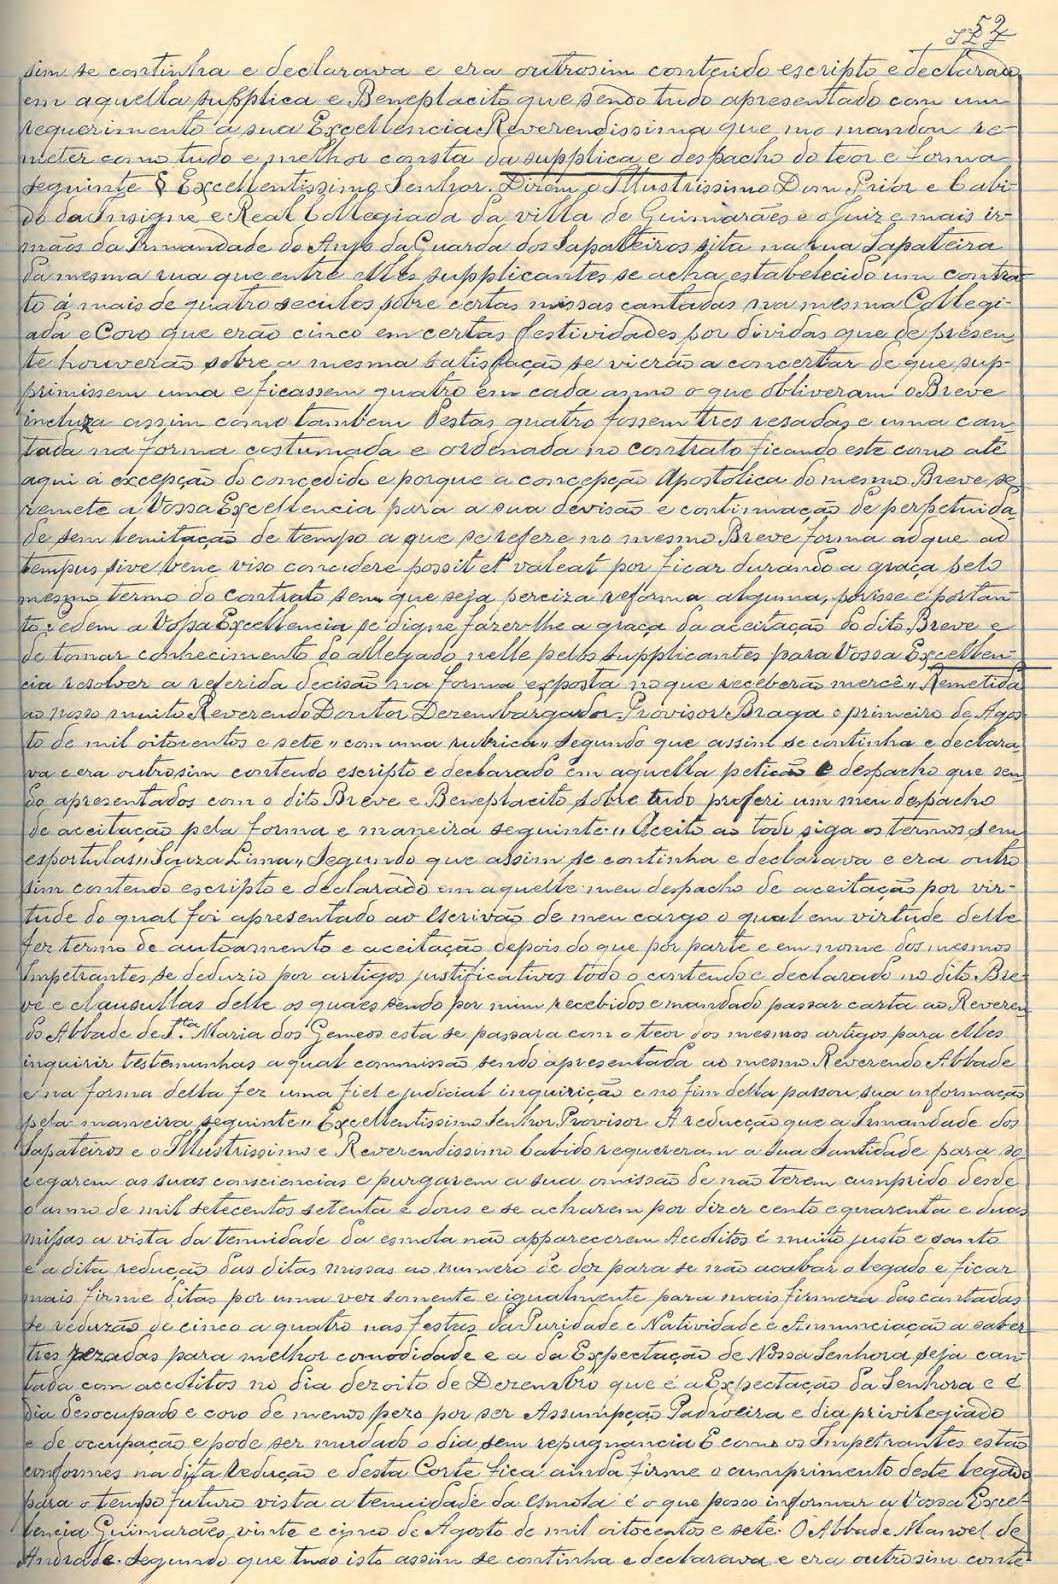 52
sim se continha e declarava e era outrosim conteudo escripto e declarado
em aquella supplica e Beneplacito que sendo tudo apresentado com um
requerimento a sua Excellencia Reverendissima que mo mandou re-
meter como tudo e melhor consta da supplica e despacho do teor e forma
seguinte § Excellentissimo Senhor. Dizem o Illustrissimo Dom Prior e Cabi-
do da Insigne e Real Collegiada da villa de Guimarães e o Juiz e mais ir-
mãos da Irmandade do Anjo da Guarda dos Sapateiros sita na rua Sapateira
da mesma rua que entre elles supplicantes se acha estabelecido um contra-
to á mais de quatro seculos sobre certas missas cantadas na mesma Collegi-
ada e Coro que erão cinco em certas festividades por dividas que de presen-
te houverão sobre a mesma satisfação se vierão a concertar de que sup-
primissem uma e ficassem quatro em cada anno o que obtiveram o Breve
incluza assim como tambem destas quatro fossem tres resadas e uma can-
tada na forma costumada e ordenada no contrato ficando este como até
aqui á excepção do concedido e porque a concepção Apostolica do mesmo Breve se
remete a Vossa Excellencia para a sua devisão e continuação de perpetuida-
de sem lemitação de tempo a que se refere no mesmo Breve forma adque ad
tempus sive bene viso concidere possit et valeat por ficar durando a graça pelo
mesmo termo do contrato sem que seja perciza reforma alguma, portan-
to pedem a Vossa Excellencia se digne fazer-lhe a graça da aceitação do dito Breve e
de tomar conhecimento do allegado nelle pelos supplicantes para Vossa Excellen-
cia resolver a referida decisão na forma exposta no que receberão mercê" Remetida
ao nosso muito Reverendo Doutor Dezembargador Provisor Braga o primeiro de Agos-
to de mil oitocentos e sete "com uma rubrica" Segundo que assim se continha e declara-
va e era outrosim contendo escripto e declarado em aquella petição e despacho que sen-
do apresentados com o dito Breve e Beneplacito sobre tudo proferi um meu despacho
de aceitação pela forma e maneira seguinte " Aceito ao todo siga os termos sem
esportulas" Souza Lima" Segundo que assim se continha e declarava e era outro
sim contendo escripto e declarado em aquelle meu despacho de aceitação por vir-
tude do qual foi apresentado ao Escrivão de meu cargo o qual em virtude delle
fez termo de autoamento e aceitação depois do que por parte e em nome dos mesmos
Impetrantes se deduzio por artigos justificativos todo o contendo e declarado no dito Bre-
ve e clausullas delle os quaes sendo por mim recebidos e mandado passar carta ao Reveren-
do Abbade de Sta. Maria dos Gemeos esta se passara com o teor dos mesmos artigos para elles
inquirir testemunhas a qual commissão sendo apresentada ao mesmo Reverendo Abbade
e na forma della fez uma fiel e judicial inquirição e no fim della passou sua informação
pela maneira seguinte" Excellentissimo Senhor Provisor A reducção que a Irmandade dos
Sapateiros e o Illustrissimo e Reverendissimo Cabido requereram a Sua Santidade para so-
cegarem as suas consciencias e purgarem a sua omissão de não terem cumprido desde
o anno de mil setecentos setenta e dous e se acharem por dizer cento e quarenta e duas
missas a vista da tenuidade da esmola não apparecerem Accolitos é muito justo e santo
e a dita redução das ditas missas ao numero de dez para se não acabar o legado e ficar
mais firme ditas por uma vez somente e igualmente para mais firmeza das cantadas
se reduzão de cinco a quatro nas festas da Puridade e Natividade e Annunciação a saber
tres rezadas para melhor comodidade e a da Expectação de Nossa Senhora seja can-
tada com accolitos no dia dezoito de Dezembro que é a Expectação da Senhora e é
dia desocupado e coro de menos pezo por ser Assumpção Padroeira e dia privilegiado
e de occupação e pode ser mudado o dia sem repugnancia E como os Impetrantes estão
conformes na dita redução e desta Corte fica ainda firme o cumprimento deste legado
para o tempo futuro vista a tenuidade da Esmola é o que posso informar a Vossa Excel-
lencia Guimarães vinte e cinco de Agosto de mil oitocentos e sete. O Abbade Manoel de
Andrade. Segundo que tudo isto assim se continha e declarava e era outrosim conte-